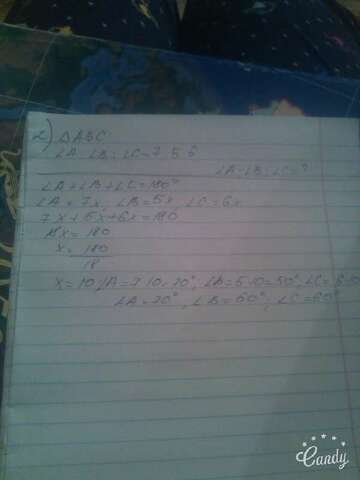 2) △ABC
∠A:∠B:∠C=7:5:6
∠A;∠B;∠C=?
∠A+∠B+∠C=180°
∠A=7x, ∠B=5x, ∠C=6x
7x+5x+6x=180
18x=180
x=180/18
x=10; ∠A=7·10=70°; ∠B=5·10=50°; ∠C=6·10
∠A=70°, ∠B=60°; ∠C=60°
Candy